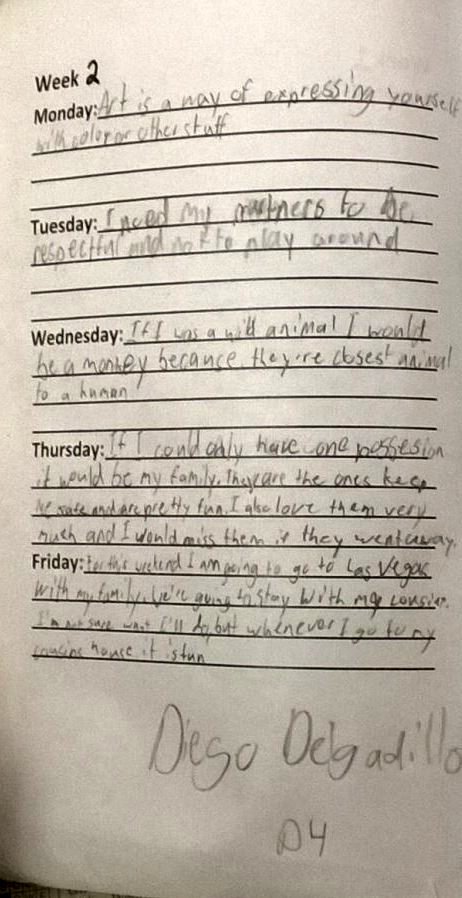 Week 2
Monday: Art is a way of expressing yourself
with color or other stuff
Tuesday: I need my partners to be
respectful and not to play around
Wednesday: If I was a wild animal I would
be a monkey becance they're closest animal
to a human
Thursday: If I could only have one possesion
it would be my family. They are the ones keep
me safe and are pretty fun. I also love them very
much and I would miss them if they went away.
Friday: For this weekend I am going to go to Las Vegas
with my family. We're going to stay with my
I'm not sure what I'll do, but whenever I go to my
cousins house it is fun
Diego Delgadillo
D4